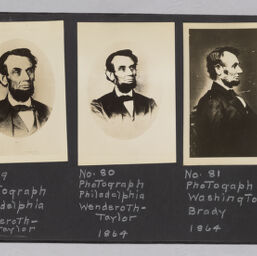 9
ograph
delphia
eroth-
aylor
No. 80
Photograph
Philadelphia
Wenderoth-
Taylor
1864
No. 81
Photogaph
Washingto
Brady
1864